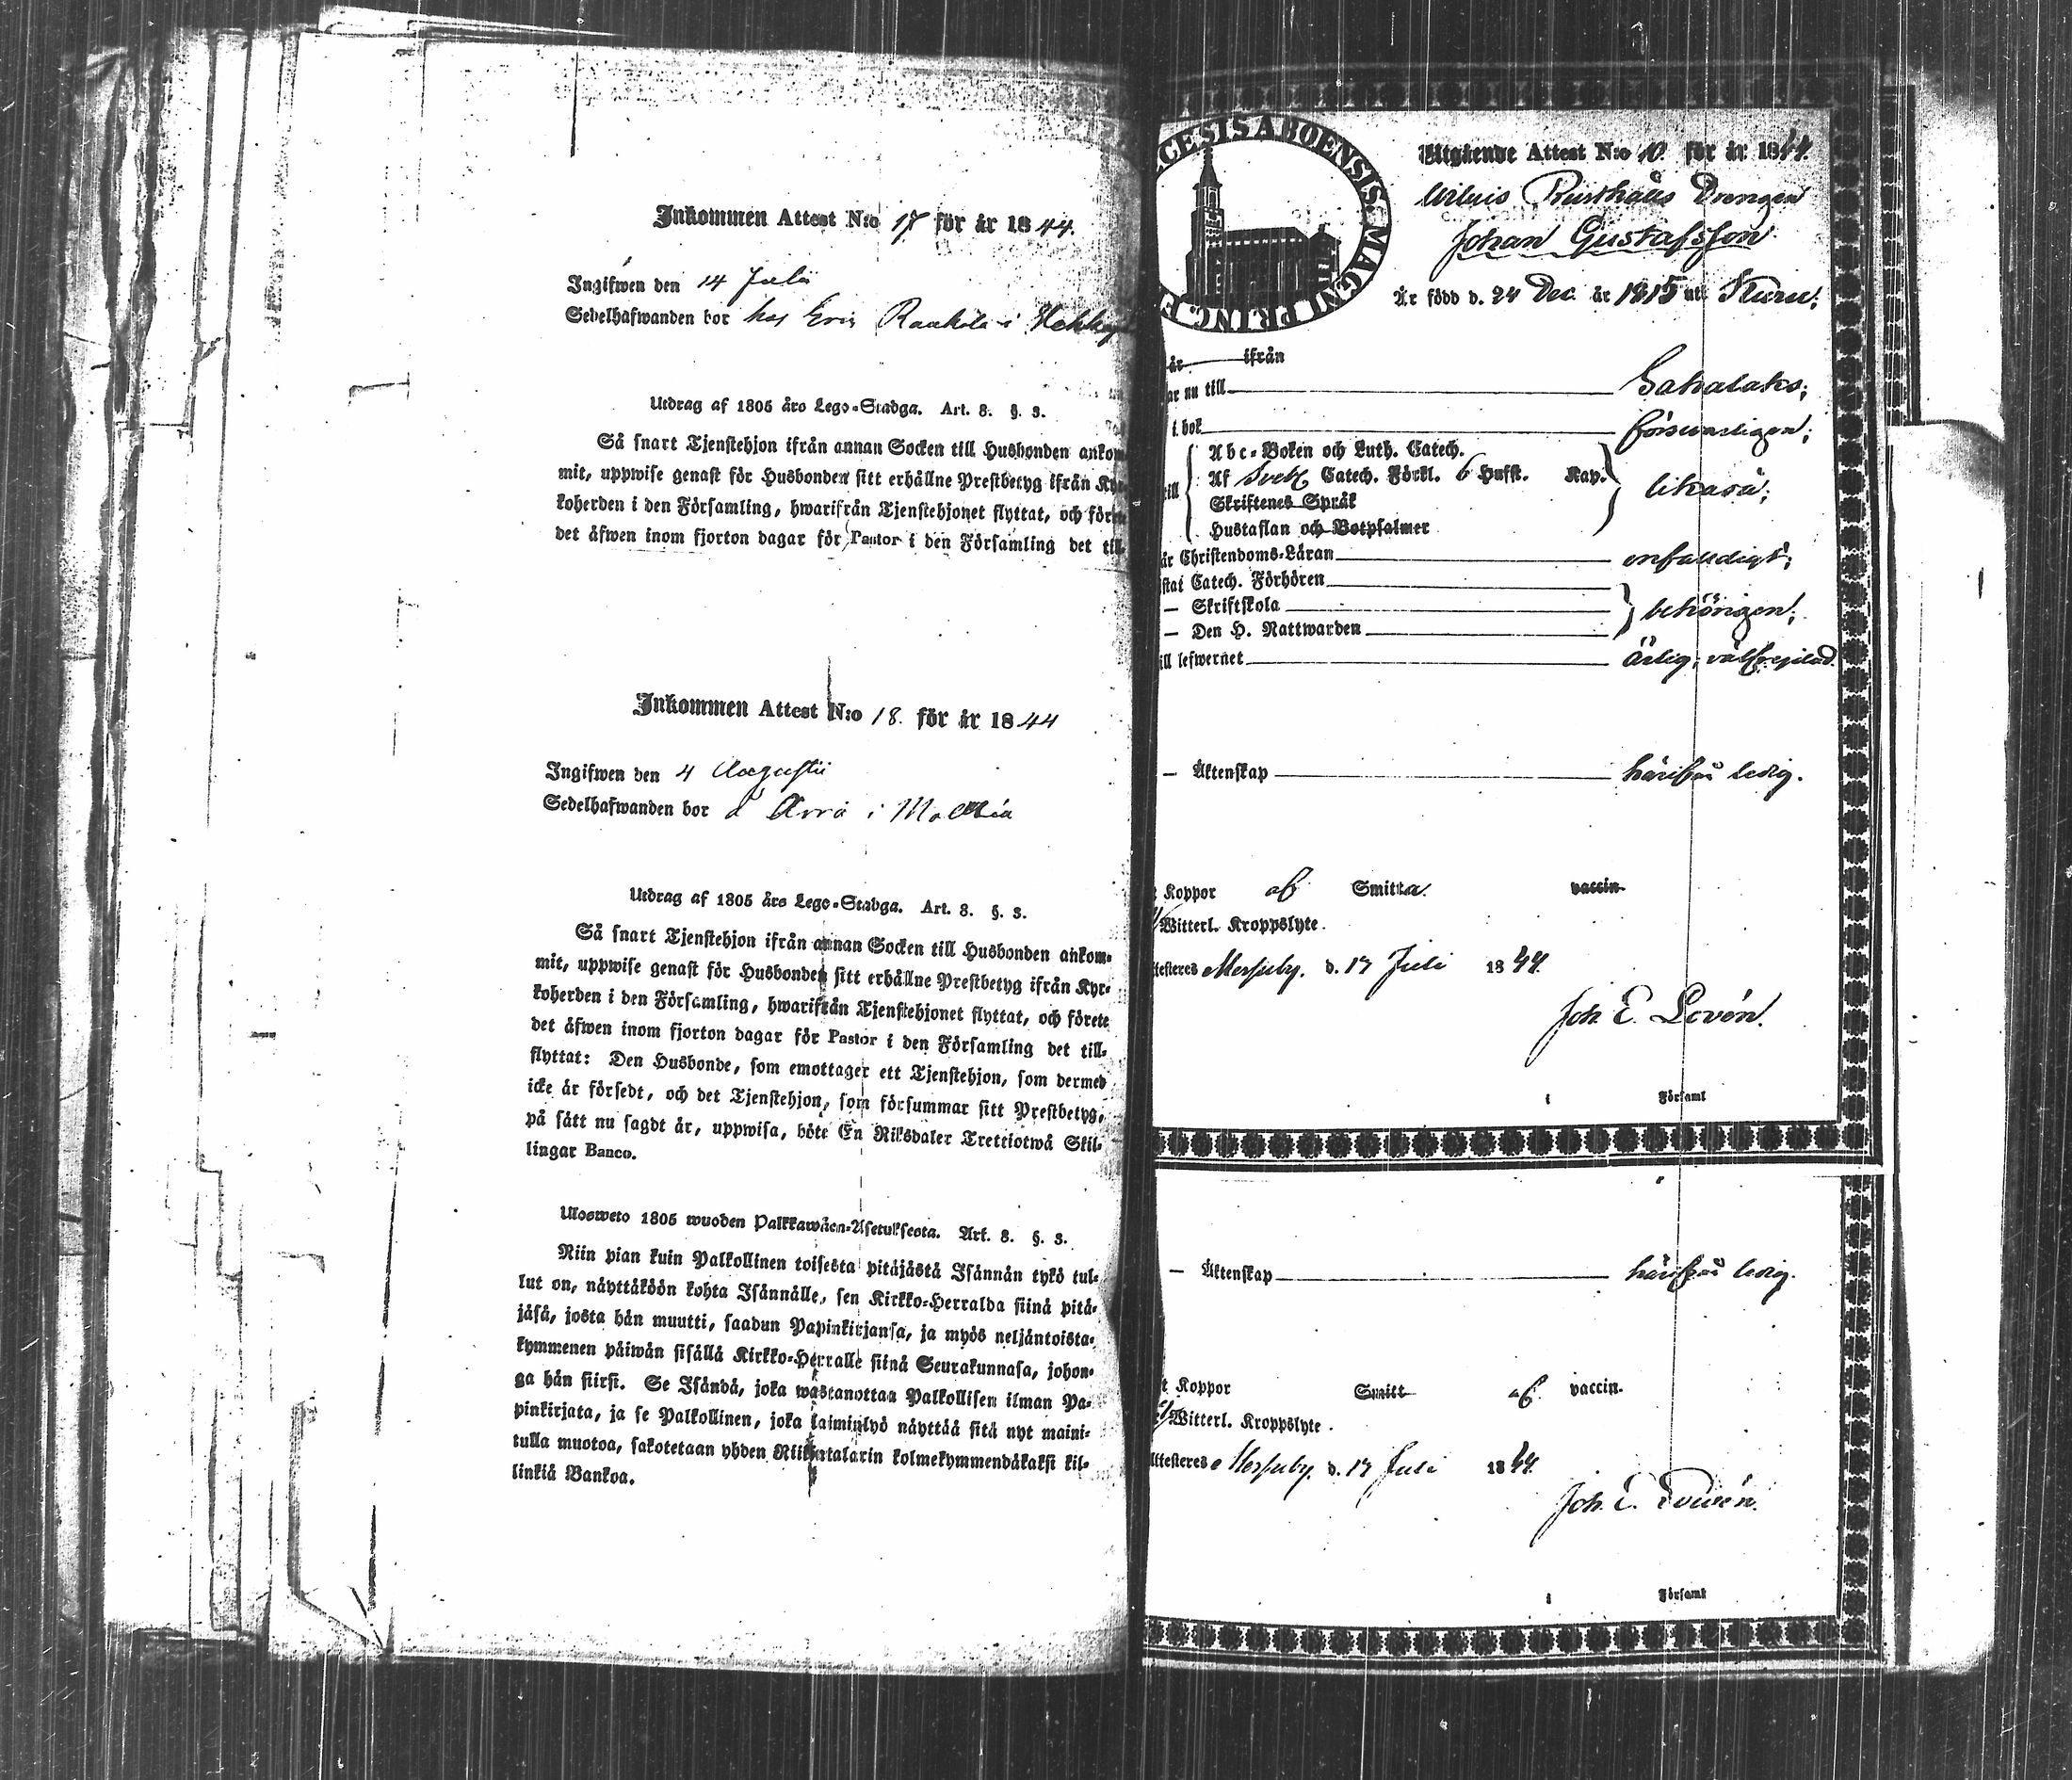 Inkommen Attest N:o 17 för år 1844.
Ingifwen den 14 Julii
Sedelhafwanden bor hos Eric Raukola i
Utdrag af 1805 års Lego-Stadga. Art. 8. §. 3.
Så snart Tjenstehjon ifrån annan Socken till Husbonden ankom
mit, uppwise genast för Husbonden sitt erhållne Prestbetyg ifrån Kyr
koherden i den Församling, hwarifrån Tjenstehjonet flyttat, och förete
det äfwen inom fjorton dagar för Pastor i den Församling det till
Inkommen Attest N:o 18. för år 1844
Ingifwen den 4 Augustii
Sedelhafwanden bor å Arra i
Utdrag af 1805 års Lego-Stadga. Art. 8. §. 3.
Så snart Tjenstehjon ifrån annan Socken till Husbonden ankom-
mit, uppwise genast för Husbonden sitt erhållne Prestbetyg ifrån Kyr-
koherden i den Församling, hwarifrån Tjenstehjonet flyttat, och förete
det äfwen inom fjorton dagar för Pastor i den Församling det till-
flyttat: Den Husbonde, som emottager ett Tjenstehjon, som dermed
icke är försedt, och det Tjenstehjon, som försummar sitt Prestbetyg,
på sätt nu sagdt är, uppwisa, böte En Riksdaler Trettiotwå Skil-
lingar Banco.
Ulosweto 1805 wuoden Palkkawäen-Asetuksesta. Art. 8. §. 3.
Niin pian kuin Palkollinen toisesta pitäjästä Isännän tykö tul-
lut on, näyttäköön kohta Isännälle, sen Kirkko-Herralda siinä pitä-
jäsä, josta hän muutti, saadun Papinkirjansa, ja myös neljäntoista-
kymmenen päiwän sisällä Kirkko-Herralle siinä Seurakunnasa, johon-
ga hän siirsi. Se Isändä, joka wastanottaa Palkollisen ilman Pa-
pinkirjata, ja se Palkollinen, joka laiminlyö näyttää sitä nyt maini-
tulla muotoa, sakotetaan yhden Riikintalarin kolmekymmendäkaksi kil-
linkiä Bankoa.
CESIS ABOENSIS. MAGNI PRINC. F
Utgående Attest N:o 10. för år 1844.
Rusthålls Drengen
Johan Gustafsson
Är född d. 24 Dec. år 1815 uti Kuru;
år ifrån
ar nu till Sahalaks;
i bok försvarligen;
Abc-Boken och Luth. Catech.
till Af Sveb. Catech. Förkl. 6 Hufst. Kap. likaså;
Skriftenes Språk
Hustaflan och Botpsalmer
är Christendoms-Läran enfalldigt;
stat Catech. Förhören
— Skriftskola behörigen;
— Den H. Nattwarden
ill lefwernet ärlig, välfrejdad.
— Äktenskap härifrån ledig.
t Koppor af Smitta. vaccin.
Witterl. Kroppslyte.
ttesteres d. 17 Juli 1844.
Joh. E. Lovén.
i Församl
— Äktenskap härifrån ledig.
t Koppor Smitt af vaccin.
Witterl. Kroppslyte.
Attesteres d. 17 Juli 1844.
Joh. E. Lovén.
i Församl